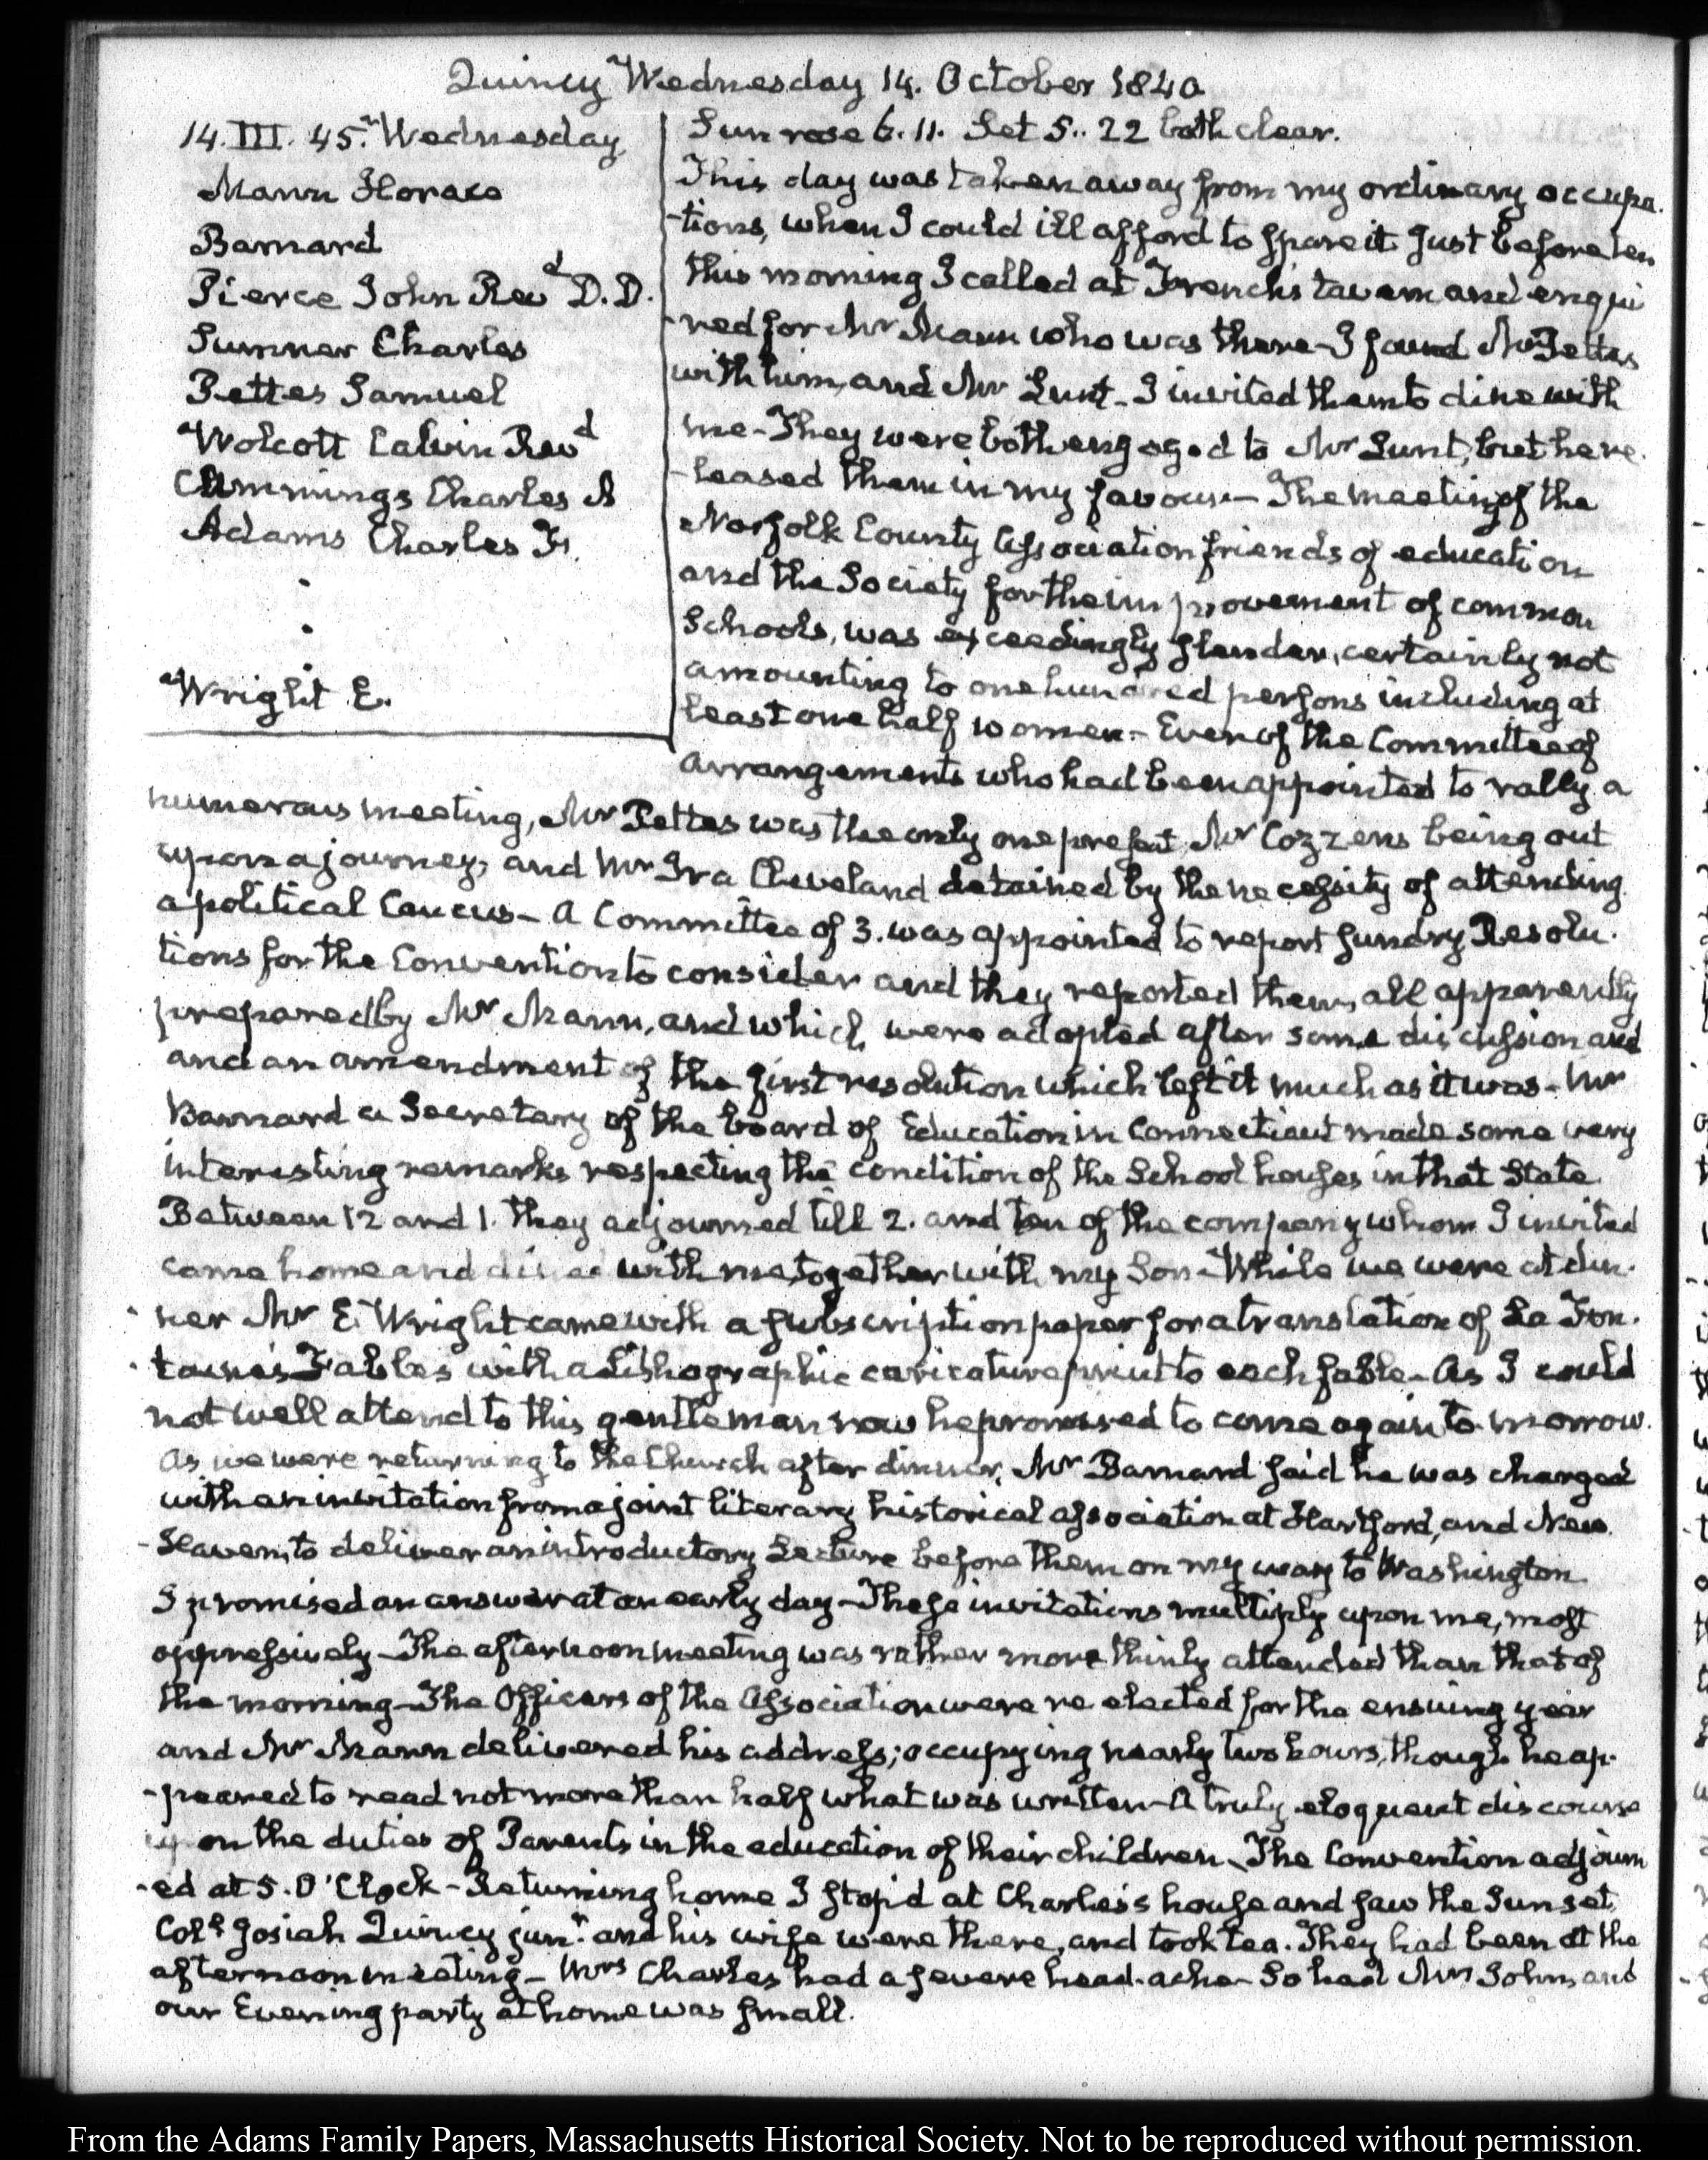 Quincy Wednesday 14. October 1840
14. III. 45. Wednesday
Mann Horace
Barnard
Pierce John Revd D.D.
Sumner Charles
Pettes Samuel
Wolcott Calvin Revd
Cummings Charles A
Adams Charles F.
.
.
.
Wright E.
Sun rose 6. 11. Set 5.. 22 both clear.
This day was taken away from my ordinary occupa-
-tions, when I could ill afford to spare it. Just before ten
this morning I called at French's tavern and enqui
-red for Mr Mann who was there- I found Mr Pettes
with him, and Mr Lunt- I invited them to dine with
me- They were both engaged to Mr Lunt, but he re-
-leased them in my favour- The meeting of the
Norfolk County Association friends of education
and the Society for the improvement of common
Schools, was exceedingly slender, certainly not
amounting to one hundred persons including at
least one half women.- Even of the Committee of
Arrangements who had been appointed to rally a
numerous meeting, Mr Pettes was the only one present, Mr Cozzens being out
upon a journey, and Mr Ira Cleveland detained by the necessity of attending
a political Caucus- A Committee of 3. was appointed to report sundry Resolu-
tions for the Convention to consider and they reported them, all apparently
prepared by Mr Mann, and which were adopted after some discussion and
and an amendment of the first resolution which left it much as it was- Mr
Barnard a Secretary of the board of Education in Connecticut made some very
interesting remarks respecting the condition of the School houses in that State
Between 12 and 1. they adjourned till 2. and ten of the company whom I invited
came home and dined with me, together with my Son- While we were at din-
ner Mr E. Wright came with a subscription paper for a translation of La Fon-
-taine's Fables with a Lithographic caricature print to each fable- As I could
not well attend to this gentleman now he promised to come again to-morrow.
As we were returning to the Church after dinner, Mr Barnard said he was charged
with an invitation from a joint literary historical association at Hartford, and New
-Haven, to deliver an introductory Lecture before them on my way to Washington
I promised an answer at an early day- These invitations multiply upon me, most
oppressively- The afternoon meeting was rather more thinly attended than that of
the morning- The Officers of the Association were re elected for the ensuing year
and Mr Mann delivered his address; occupying nearly two hours, though he ap-
-peared to read not more than half what was written- A truly eloquent discourse
upon the duties of Parents in the education of their children- The Convention adjourn
-ed at 5. O'Clock- Returning home I stop'd at Charles's house and saw the Sun set.
Coll Josiah Quincy junr and his wife were there, and took tea. They had been at the
afternoon meeting- Mrs Charles had a severe head-ache- So had Mrs John, and
our Evening party at home was small.
From the Adams Family Papers, Massachusetts Historical Society. Not to be reproduced without permission.